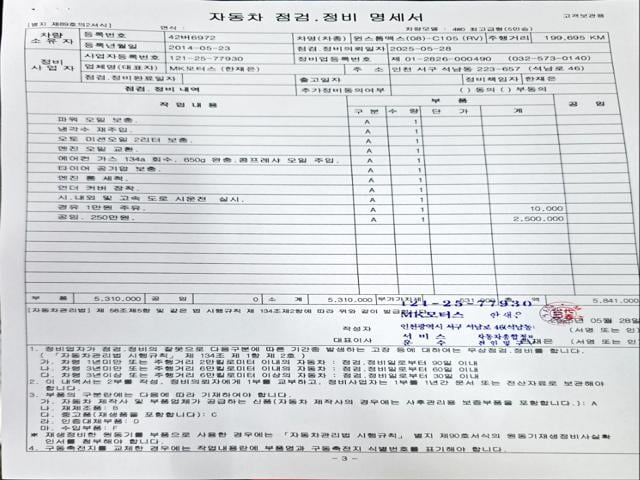 자동차 점검.정비 명세서
[별지 제89호의2서식] 연식 : 차량모델 : 4WD 최고급형(5인승) 고객보관용
차량 소유자 등록번호 42버6972 차명(차종) 윈스톰맥스(08)-C105 (RV) 주행거리 199,695 KM
등록년월일 2014-05-23 점검.정비의뢰일 2025-05-28
정비 사업자 사업자등록번호 121-25-77930 정비업등록번호 제 01-2826-000490 (032-573-0140)
업체명(대표자) MK모터스 (한재은) 주 소 인천 서구 석남동 223-657 (석남로 46)
점검.정비완료일자 출고일자 정비책임자 한재은
점검.정비내역 추가정비동의여부 ( ) 동의 ( ) 부동의
작 업 내 용 부 품 공 임
구 분 수 량 단 가 계
파워 오일 보충. A 1
냉각수 재주입. A 1
오토 미션오일 2리터 보충. A 1
엔진 오일 교환. A 1
에어컨 가스 134a 회수. 650g 완충.콤프레샤 오일 주입. A 1
타이어 공기압 보충. A 1
엔진 룸 세척. A 1
언더 커버 장착. A 1
시.내외 및 고속 도로 시운전 실시. A 1
경유 1만원 주유. A 1 10,000
공임. 250만원. A 1 2,500,000
부 품 5,310,000 공 임 0 소 계 5,310,000 부가가치세 531,000 총 액 5,841,000
[자동차관리법] 제 58조제5항 및 같은 법 시행규칙 제 134조제2항에 따라 위와 같이 발급
121-25-77930
MK모터스
인천광역시 서구 석남로 46(석남동)
05월 28일
작성자 (서명 또는 인)
대표이사 (서명 또는 인)
1. 정비업자가 점검.정비의 잘못으로 다음구분에 따른 기간중 발생하는 고장 등에 대하여는 무상점검.정비를 합니다.
( 「자동차관리법 시행규칙」 제 134조 제 1항 제 2호 )
가. 차령 1년미만 또는 주행거리 2만킬로미터 이내의 자동차 : 점검.정비일로부터 90일 이내
나. 차령 3년미만 또는 주행거리 6만킬로미터 이내의 자동차 : 점검.정비일로부터 60일 이내
다. 차령 3년이상 또는 주행거리 6만킬로미터 이상의 자동차 : 점검.정비일로부터 30일 이내
2. 이 내역서는 2부를 작성, 정비의뢰자에게 1부를 교부하고, 정비사업자는 1부를 1년간 문서 또는 전산자료로 보관해야
합니다.
3. 부품의 구분란에는 다음에 따라 기재하여야 합니다.
가. 자동차 제작사 및 부품업체가 공급하는 신품(자동차 제작사의 경우에는 사후관리용 보증부품을 포함합니다.) : A
나. 재제조품: B
다. 중고품(재생품을 포함합니다): C
라. 인증대체부품: D
마. 수입부품: F
※ 재생정비한 원동기를 부품으로 사용한 경우에는 「자동차관리법 시행규칙」 별지 제90호서식의 원동기재생정비사실확
인서를 첨부해야 합니다.
4. 구동축전지를 교체한 경우에는 작업내용란에 부품명과 구동축전지 식별번호를 표기해야 합니다.
- 3 -